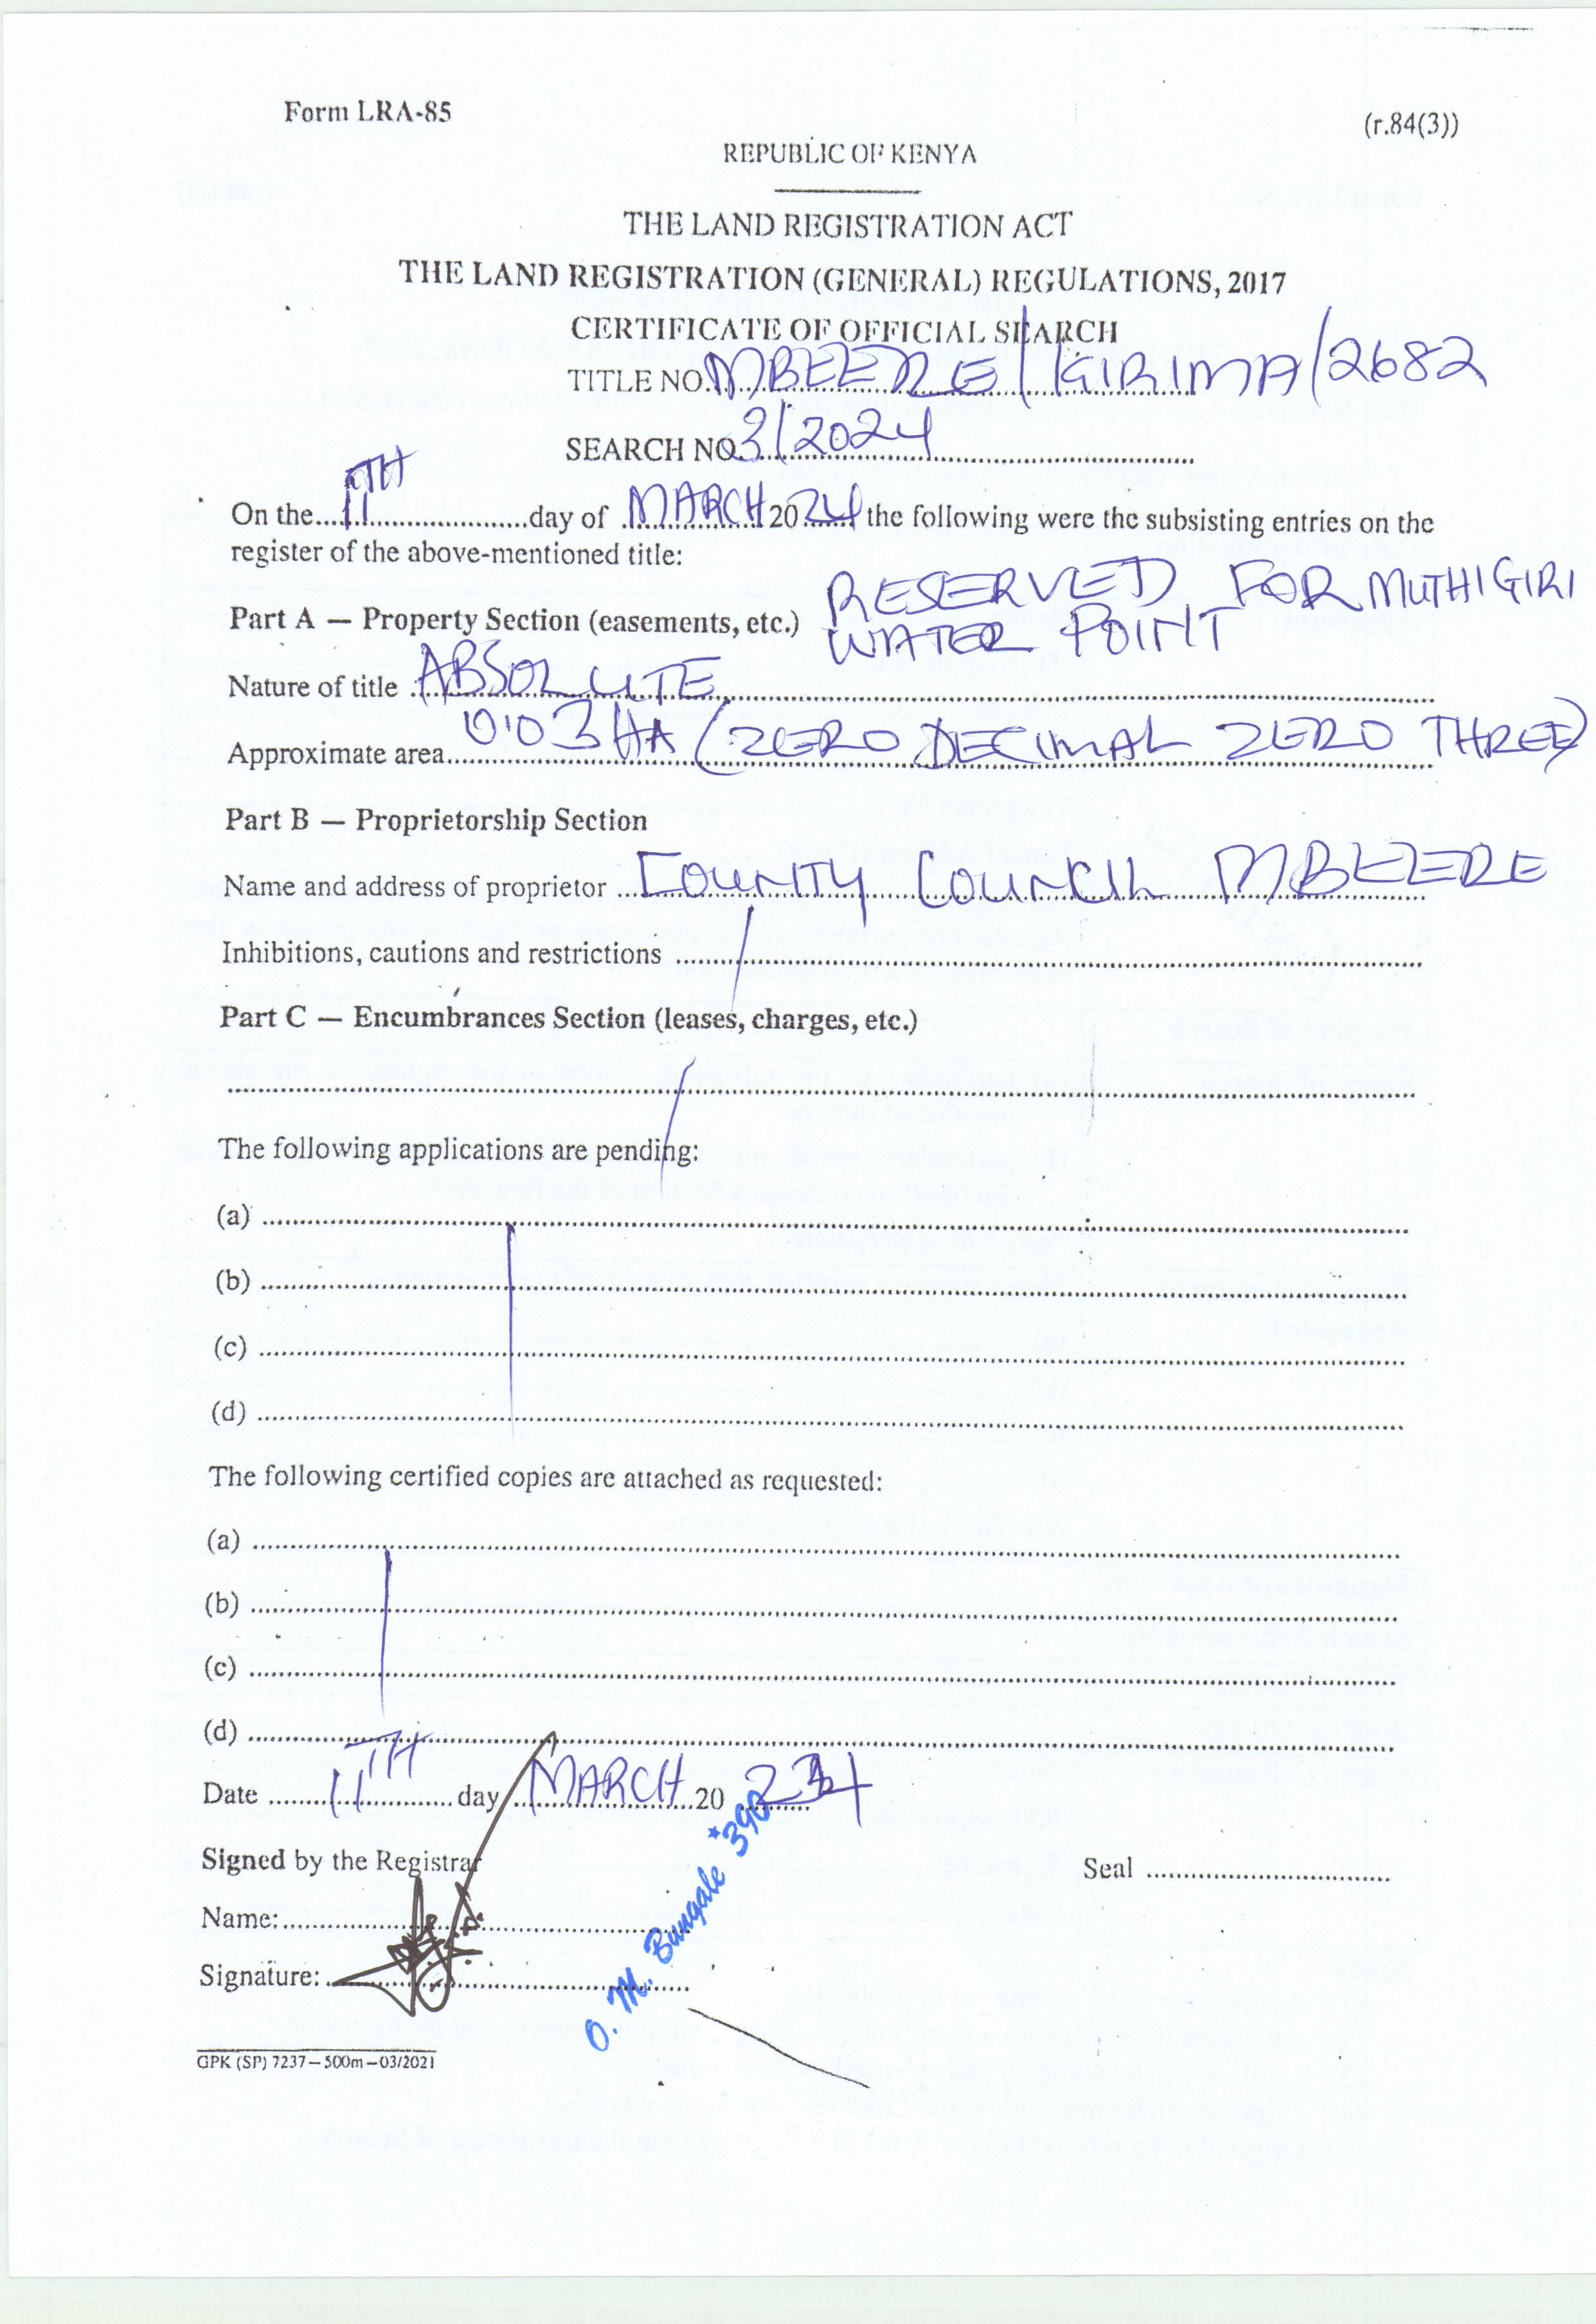 Form LRA-85
(r.84(3))
REPUBLIC OF KENYA
THE LAND REGISTRATION ACT
THE LAND REGISTRATION (GENERAL) REGULATIONS, 2017
CERTIFICATE OF OFFICIAL SEARCH
TITLE NO. MBEERE/KIRIMA/2682
SEARCH NO. 3/2024
On the 11TH day of MARCH 2024 the following were the subsisting entries on the
register of the above-mentioned title:
Part A — Property Section (easements, etc.) RESERVED FOR MUTHIGIRI
WATER POINT
Nature of title ABSOLUTE
Approximate area 0.03 HA (ZERO DECIMAL ZERO THREE)
Part B — Proprietorship Section
Name and address of proprietor COUNTY COUNCIL MBEERE
Inhibitions, cautions and restrictions
Part C — Encumbrances Section (leases, charges, etc.)
The following applications are pending:
(a)
(b)
(c)
(d)
The following certified copies are attached as requested:
(a)
(b)
(c)
(d)
Date 11TH day MARCH 20 24
Signed by the Registrar
Seal
Name:
Signature:
O. M. Bungale *390
GPK (SP) 7237—500m—03/2021